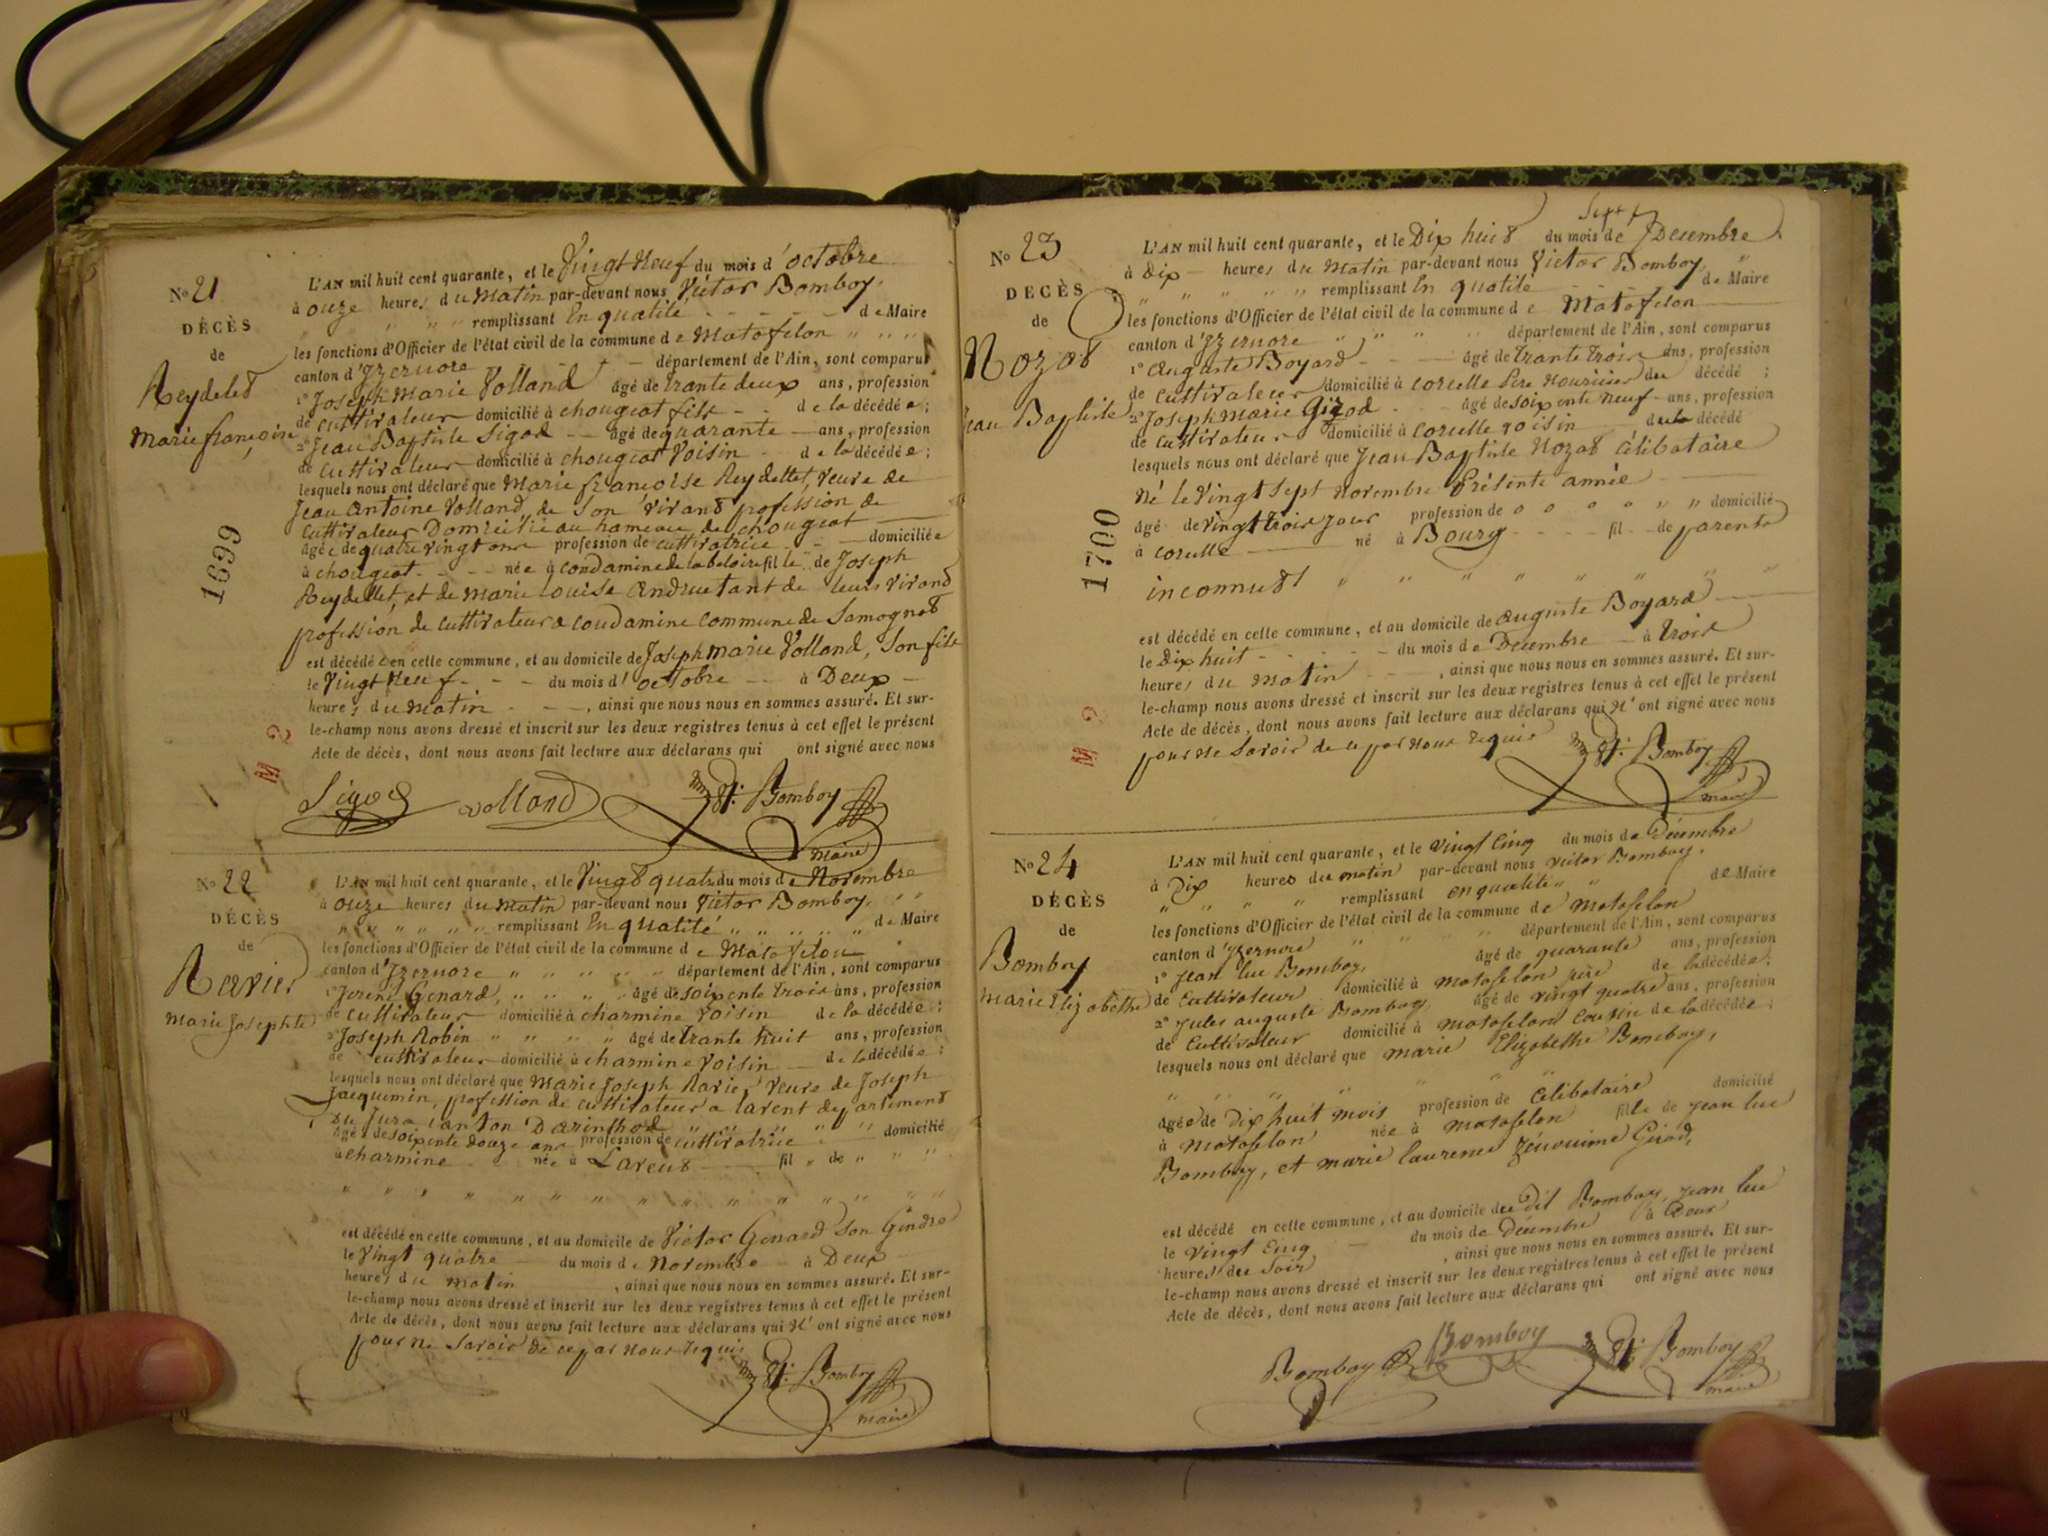 No 21
DÉCÈS
de
Reydelet
Marie françoise
L'AN mil huit cent quarante, et le Vingt Neuf du mois d'octobre
à onze heures du Matin par-devant nous Victor Bomboy,
" " " " remplissant En qualité - - - - - de Maire
les fonctions d'Officier de l'état civil de la commune de Matafelon " " "
canton d'Yzernore - département de l'Ain, sont comparus
1º Joseph Marie Volland âgé de trante deux ans, profession
de cultivateur domicilié à chougeat fils - - de la décédée;
2º Jean Baptiste Sigod - - âgé de quarante - ans, profession
de Cultivateur domicilié à chougeat Voisin - de la décédée;
lesquels nous ont déclaré que Marie françoise Reydellet, veuve de
Jean Antoine Volland, de Son Vivant profession de
Cultivateur Domicilié au hameau de chougeat
âgée de quatre vingt ans profession de cultivatrice - - domiciliée
à chougeat - - - née à condamine de la beloire fille de Joseph
Reydellet, et de marie Louise Andruetant de leurs vivand
profession de cultivateur a condamine commune de Samognat
est décédée en cette commune, et au domicile de Joseph marie Volland, Son fils
le Vingt Neuf - - - du mois d'octobre - - à Deux -
heures du Matin - - -, ainsi que nous nous en sommes assuré. Et sur-
le-champ nous avons dressé et inscrit sur les deux registres tenus à cet effet le présent
Acte de décès, dont nous avons fait lecture aux déclarans qui ont signé avec nous
Sigod Volland Bomboy
maire
1699
M 2
No 22
DÉCÈS
de
Ravier
Marie Josephte
L'AN mil huit cent quarante, et le Vingt quatre du mois de Novembre
à onze heures du matin par-devant nous Victor Bomboy, " "
" " " " " " remplissant En qualité " " " " " de Maire
les fonctions d'Officier de l'état civil de la commune de Matafelon
canton d'Yzernore " " " " " département de l'Ain, sont comparus
1º Jérémi Genard, " " " âgé de soixente trois ans, profession
de cultivateur domicilié à charmine voisin de la décédée;
2º Joseph Robin " " " " " âgé de trante huit ans, profession
de cultivateur domicilié à charmine Voisin - de la décédée;
lesquels nous ont déclaré que Marie Joseph Ravier Veuve de Joseph
Jacquemin, profession de cultivateur a Larent departement
Du Jura canton Darinthod
âgée de soixente douze ans profession de cultivatrice " " domicilié
à charmine née à Lavent fil " de " " "
" " " " " " " " " " " " " "
est décédé en cette commune, et au domicile de Victor Genard Son Gendre
le Vingt quatre - du mois de Novembre - à Deux
heures du matin, ainsi que nous nous en sommes assuré. Et sur-
le-champ nous avons dressé et inscrit sur les deux registres tenus à cet effet le présent
Acte de décès, dont nous avons fait lecture aux déclarans qui N'ont signé avec nous
pour ne Savoir de ce par Nous requis
Bomboy
maire
No 23
DECÈS
de
Nozat
Jean Baptiste
Sept
L'AN mil huit cent quarante, et le Dix huit du mois de Decembre
à dix - heures du Matin par-devant nous Victor Bomboy, "
" " " " " remplissant En qualité de Maire
les fonctions d'Officier de l'état civil de la commune de Matafelon
canton d'Yzernore " " " " département de l'Ain, sont comparus
1º Auguste Boyard - - - - âgé de trante trois ans, profession
de Cultivateur domicilié à corcelle Pere Nouricier du décédé;
2º Joseph marie Gizod - - - âgé de soixente neuf - ans, profession
de Cultivateur domicilié à corcelle voisin du décédé
lesquels nous ont déclaré que Jean Baptiste Nozat Célibataire
Né le vingt sept Novembre Présente année
âgé de vingt trois jour profession de " " " " " " domicilié
à corcelle né à Bourg - - - - fil - de parents
inconnust " " " " " " " "
est décédé en cette commune, et au domicile de Auguste Boyard
le Dix huit - - - - du mois de Decembre - à trois
heures du Matin - - -, ainsi que nous nous en sommes assuré. Et sur-
le-champ nous avons dressé et inscrit sur les deux registres tenus à cet effet le présent
Acte de décès, dont nous avons fait lecture aux déclarans qui N'ont signé avec nous
pour ne Savoir de ce par Nous requis
Bomboy
maire
1700
M 2
No 24
DÉCÈS
de
Bomboy
Marie Elizabethe
L'AN mil huit cent quarante, et le vingt Cinq du mois de Décembre
à Dix heures du matin par-devant nous victor Bomboy,
" " " " remplissant en qualité " " de Maire
les fonctions d'Officier de l'état civil de la commune de Matafelon
canton d'Yzernore " " " " " département de l'Ain, sont comparus
1º Jean luc Bomboy, âgé de quarante ans, profession
de Cultivateur domicilié à matafelon père de la décédée;
2º Jules auguste Bomboy, âgé de vingt quatre ans, profession
de Cultivateur domicilié à matafelon Cousin de la décédée;
lesquels nous ont déclaré que marie Elizabethe Bomboy,
" " " " " "
âgée de Dix huit mois profession de Célibataire domicilié
à matafelon née à matafelon fille de Jean luc
Bomboy, et marie laurence Zénonime Girod,
est décédé en cette commune, et au domicile du Dit Bomboy, Jean luc
le vingt Cinq - du mois de Décembre à Deux
heures du Soir, ainsi que nous nous en sommes assuré. Et sur-
le-champ nous avons dressé et inscrit sur les deux registres tenus à cet effet le présent
Acte de décès, dont nous avons fait lecture aux déclarans qui ont signé avec nous
Bomboy Bomboy Bomboy
maire